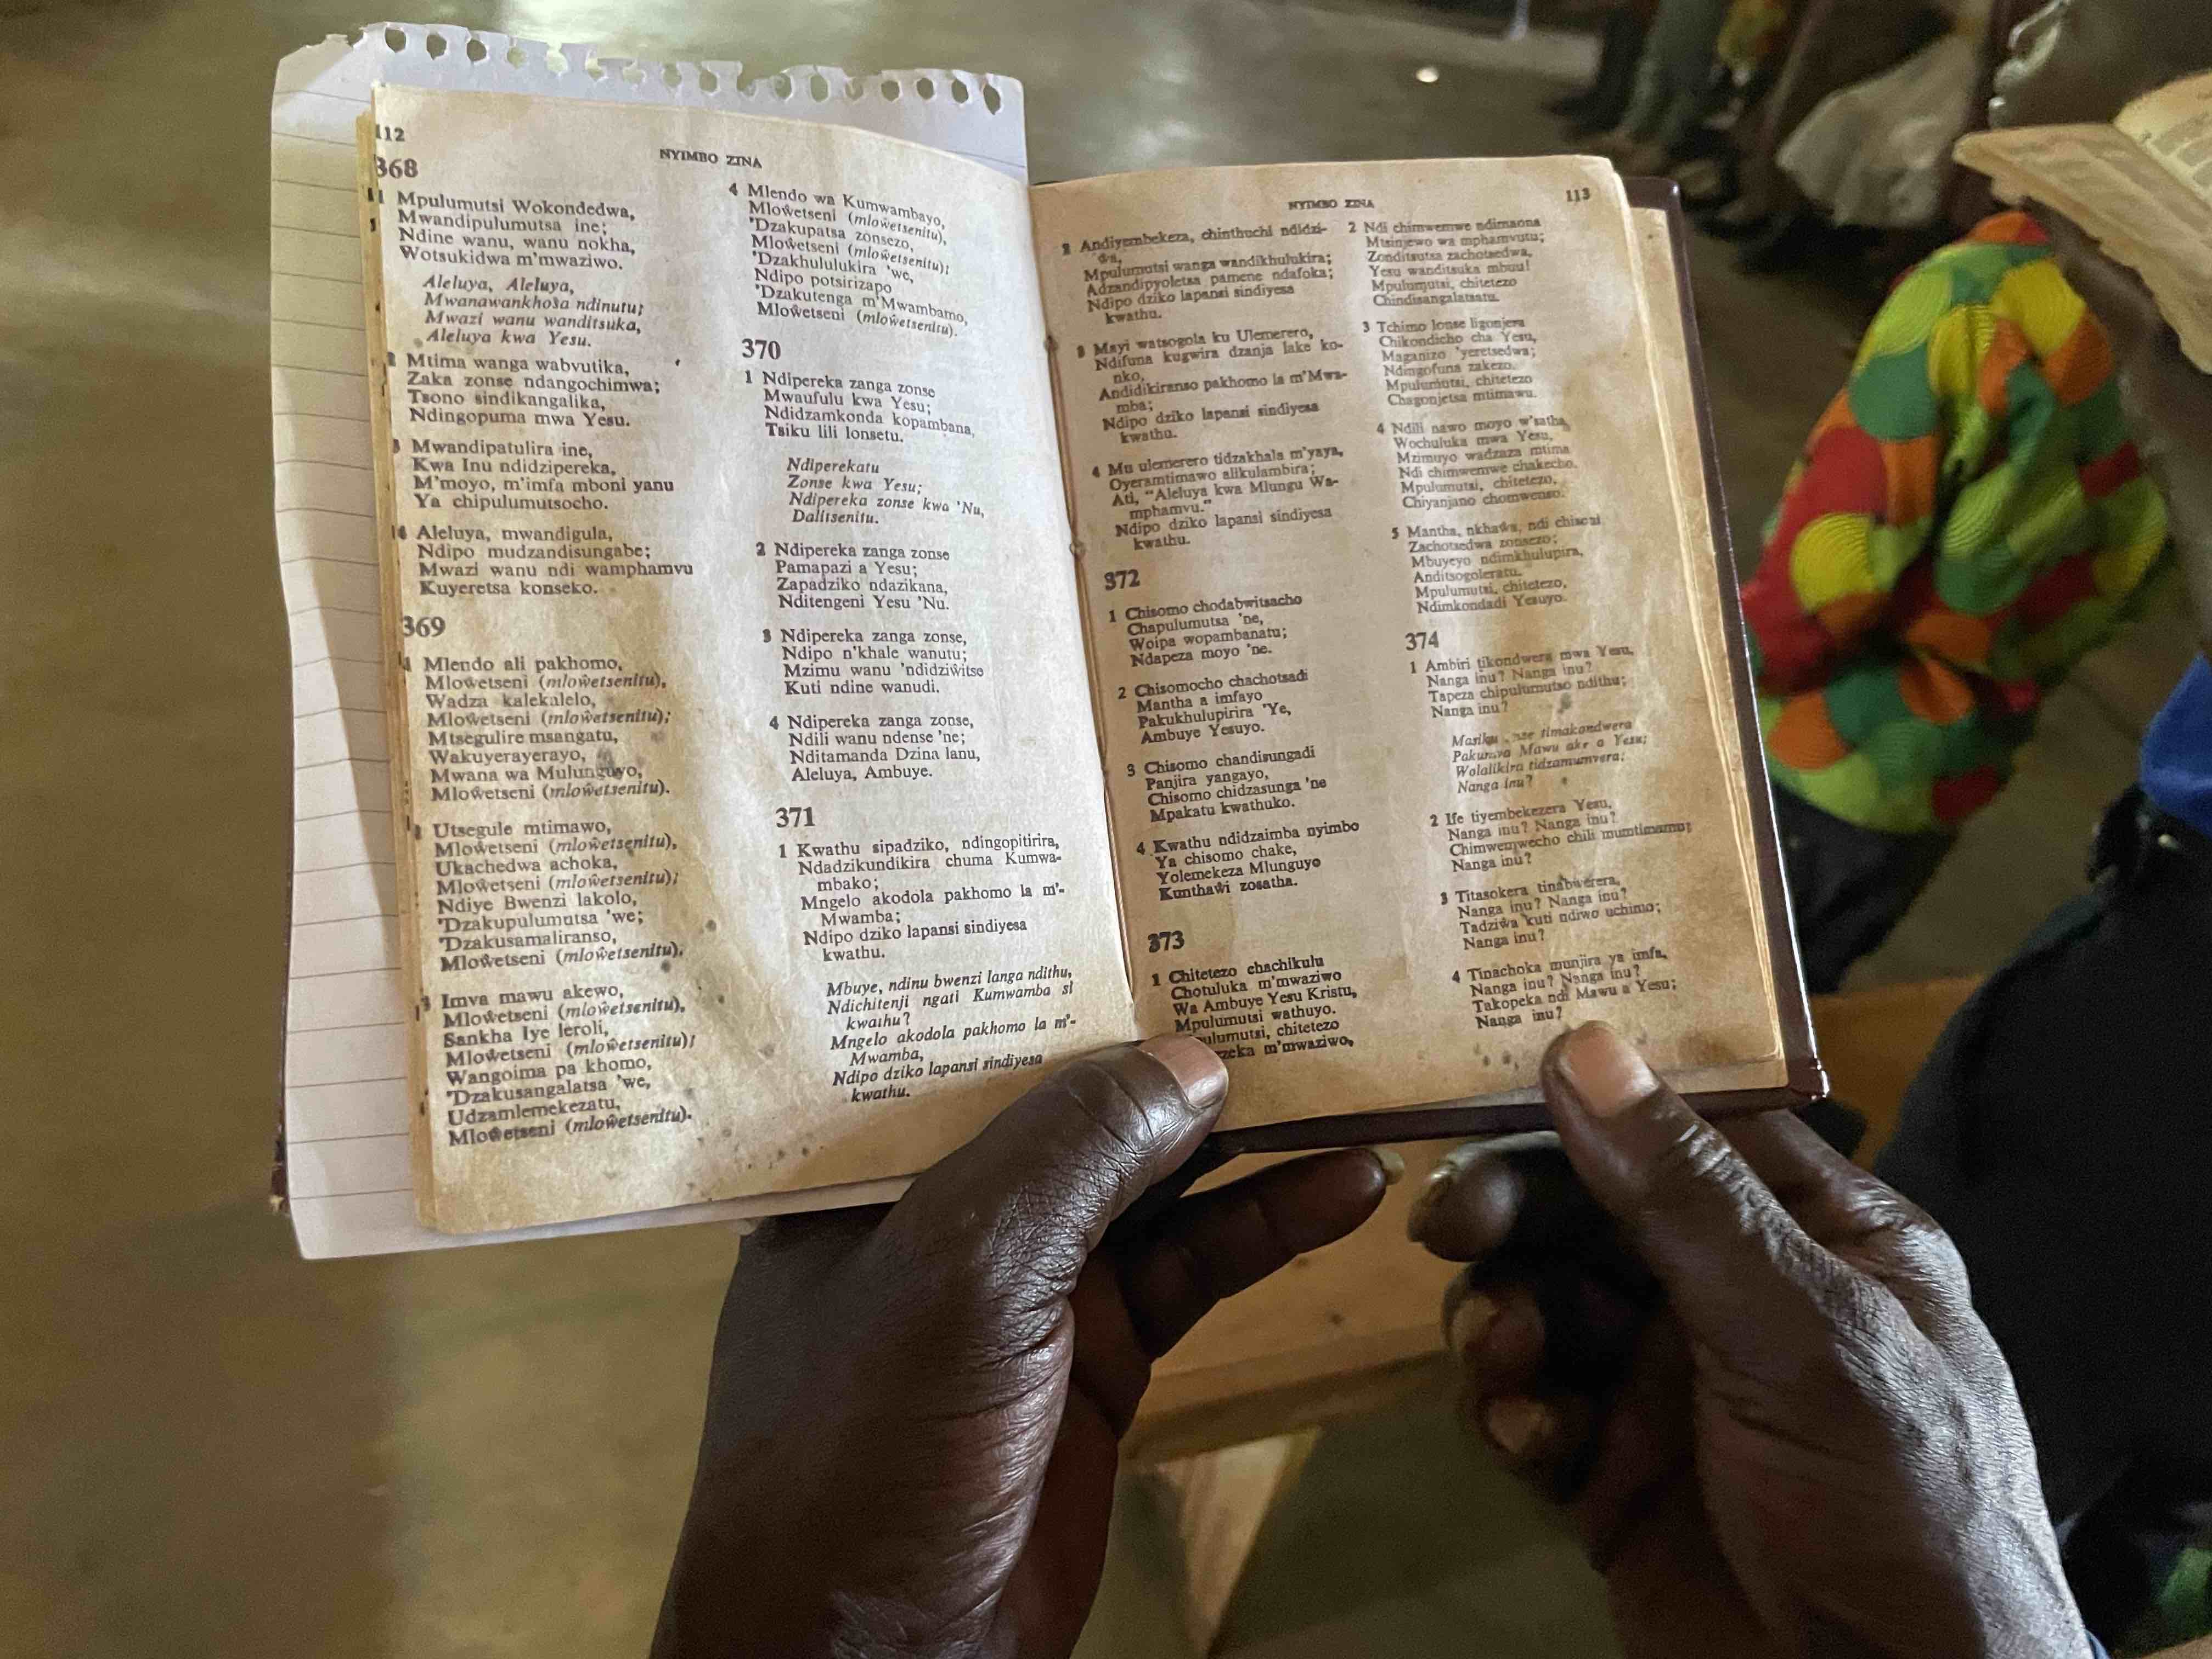 112
NYIMBO ZINA
368
1 Mpulumutsi Wokondedwa,
Mwandipulumutsa ine;
Ndine wanu, wanu nokha,
Wotsukidwa m'mwaziwo.
Aleluya, Aleluya,
Mwanawankhosa ndinutu;
Mwazi wanu wanditsuka,
Aleluya kwa Yesu.
2 Mtima wanga wabvutika,
Zaka zonse ndangochimwa;
Tsono sindikangalika,
Ndingopuma mwa Yesu.
3 Mwandipatulira ine,
Kwa Inu ndidzipereka,
M'moyo, m'imfa mboni yanu
Ya chipulumutsocho.
4 Aleluya, mwandigula,
Ndipo mudzandisungabe;
Mwazi wanu ndi wamphamvu
Kuyeretsa konseko.
369
1 Mlendo ali pakhomo,
Mloŵetseni (mloŵetsenitu),
Wadza kalekalelo,
Mloŵetseni (mloŵetsenitu);
Mtsegulire msangatu,
Wakuyerayerayo,
Mwana wa Mulunguyo,
Mloŵetseni (mloŵetsenitu).
2 Utsegule mtimawo,
Mloŵetseni (mloŵetsenitu),
Ukachedwa achoka,
Mloŵetseni (mloŵetsenitu);
Ndiye Bwenzi lakolo,
'Dzakupulumutsa 'we;
'Dzakusamaliranso,
Mloŵetseni (mloŵetsenitu).
3 Imva mawu akewo,
Mloŵetseni (mloŵetsenitu),
Sankha Iye leroli,
Mloŵetseni (mloŵetsenitu);
Wangoima pa khomo,
'Dzakusangalatsa 'we,
Udzamlemekezatu,
Mloŵetseni (mloŵetsenitu).
4 Mlendo wa Kumwambayo,
Mloŵetseni (mloŵetsenitu),
'Dzakupatsa zonsezo,
Mloŵetseni (mloŵetsenitu);
'Dzakhululukira 'we,
Ndipo potsirizapo
'Dzakutenga m'Mwambamo,
Mloŵetseni (mloŵetsenitu).
370
1 Ndipereka zanga zonse
Mwaufulu kwa Yesu;
Ndidzamkonda kopambana,
Tsiku lili lonsetu.
Ndiperekatu
Zonse kwa Yesu;
Ndipereka zonse kwa 'Nu,
Dalitsenitu.
2 Ndipereka zanga zonse
Pamapazi a Yesu;
Zapadziko ndazikana,
Nditengeni Yesu 'Nu.
3 Ndipereka zanga zonse,
Ndipo n'khale wanutu;
Mzimu wanu 'ndidziŵitse
Kuti ndine wanudi.
4 Ndipereka zanga zonse,
Ndili wanu ndense 'ne;
Nditamanda Dzina lanu,
Aleluya, Ambuye.
371
1 Kwathu sipadziko, ndingopitirira,
Ndadzikundikira chuma Kumwa-
mbako;
Mngelo akodola pakhomo la m'-
Mwamba;
Ndipo dziko lapansi sindiyesa
kwathu.
Mbuye, ndinu bwenzi langa ndithu,
Ndichitenji ngati Kumwamba si
kwathu?
Mngelo akodola pakhomo la m'-
Mwamba,
Ndipo dziko lapansi sindiyesa
kwathu.
NYIMBO ZINA
113
2 Andiyembekeza, chinthuchi ndidzi-
ŵa,
Mpulumutsi wanga wandikhulukira;
Adzandipyoletsa pamene ndafoka;
Ndipo dziko lapansi sindiyesa
kwathu.
3 Mayi watsogola ku Ulemerero,
Ndifuna kugwira dzanja lake ko-
nko,
Andidikiranso pakhomo la m'Mwa-
mba;
Ndipo dziko lapansi sindiyesa
kwathu.
4 Mu ulemerero tidzakhala m'yaya,
Oyeramtimawo alikulambira;
Ati, "Aleluya kwa Mlungu Wa-
mphamvu."
Ndipo dziko lapansi sindiyesa
kwathu.
372
1 Chisomo chodabwitsacho
Chapulumutsa 'ne,
Woipa wopambanatu;
Ndapeza moyo 'ne.
2 Chisomocho chachotsadi
Mantha a imfayo
Pakukhulupirira 'Ye,
Ambuye Yesuyo.
3 Chisomo chandisungadi
Panjira yangayo,
Chisomo chidzasunga 'ne
Mpakatu kwathuko.
4 Kwathu ndidzaimba nyimbo
Ya chisomo chake,
Yolemekeza Mlunguyo
Kunthaŵi zosatha.
373
1 Chitetezo chachikulu
Chotuluka m'mwaziwo
Wa Ambuye Yesu Kristu,
Mpulumutsi wathuyo.
chitetezo
m'mwaziwo,
2 Ndi chimwemwe ndimaona
Mtsinjewo wa mphamvutu;
Zonditsutsa zachotsedwa,
Yesu wanditsuka mbuu!
Mpulumutsi, chitetezo
Chindisangalatsatu.
3 Tchimo lonse ligonjera
Chikondicho cha Yesu,
Maganizo 'yeretsedwa;
Ndingofuna zakezo.
Mpulumutsi, chitetezo
Chagonjetsa mtimawu.
4 Ndili nawo moyo w'satha
Wochuluka mwa Yesu,
Mzimuyo wadzaza mtima
Ndi chimwemwe chakecho.
Mpulumutsi, chitetezo,
Chiyanjano chomwenso.
5 Mantha, nkhaŵa, ndi chisoni
Zachotsedwa zonsezo;
Mbuyeyo ndimkhulupira,
Anditsogoleratu.
Mpulumutsi, chitetezo,
Ndimkondadi Yesuyo.
374
1 Ambiri tikondwera mwa Yesu,
Nanga inu? Nanga inu?
Tapeza chipulumutso ndithu;
Nanga inu?
timakondwera
Mawu ake a Yesu;
Wolalikira tidzamumvera;
Nanga inu?
2 Ife tiyembekezera Yesu,
Nanga inu? Nanga inu?
Chimwemwecho chili mumtimamu;
Nanga inu?
3 Titasokera tinabwerera,
Nanga inu? Nanga inu?
Tadziŵa kuti ndiwo uchimo;
Nanga inu?
4 Tinachoka munjira ya imfa,
Nanga inu? Nanga inu?
Takopeka ndi Mawu a Yesu;
Nanga inu?